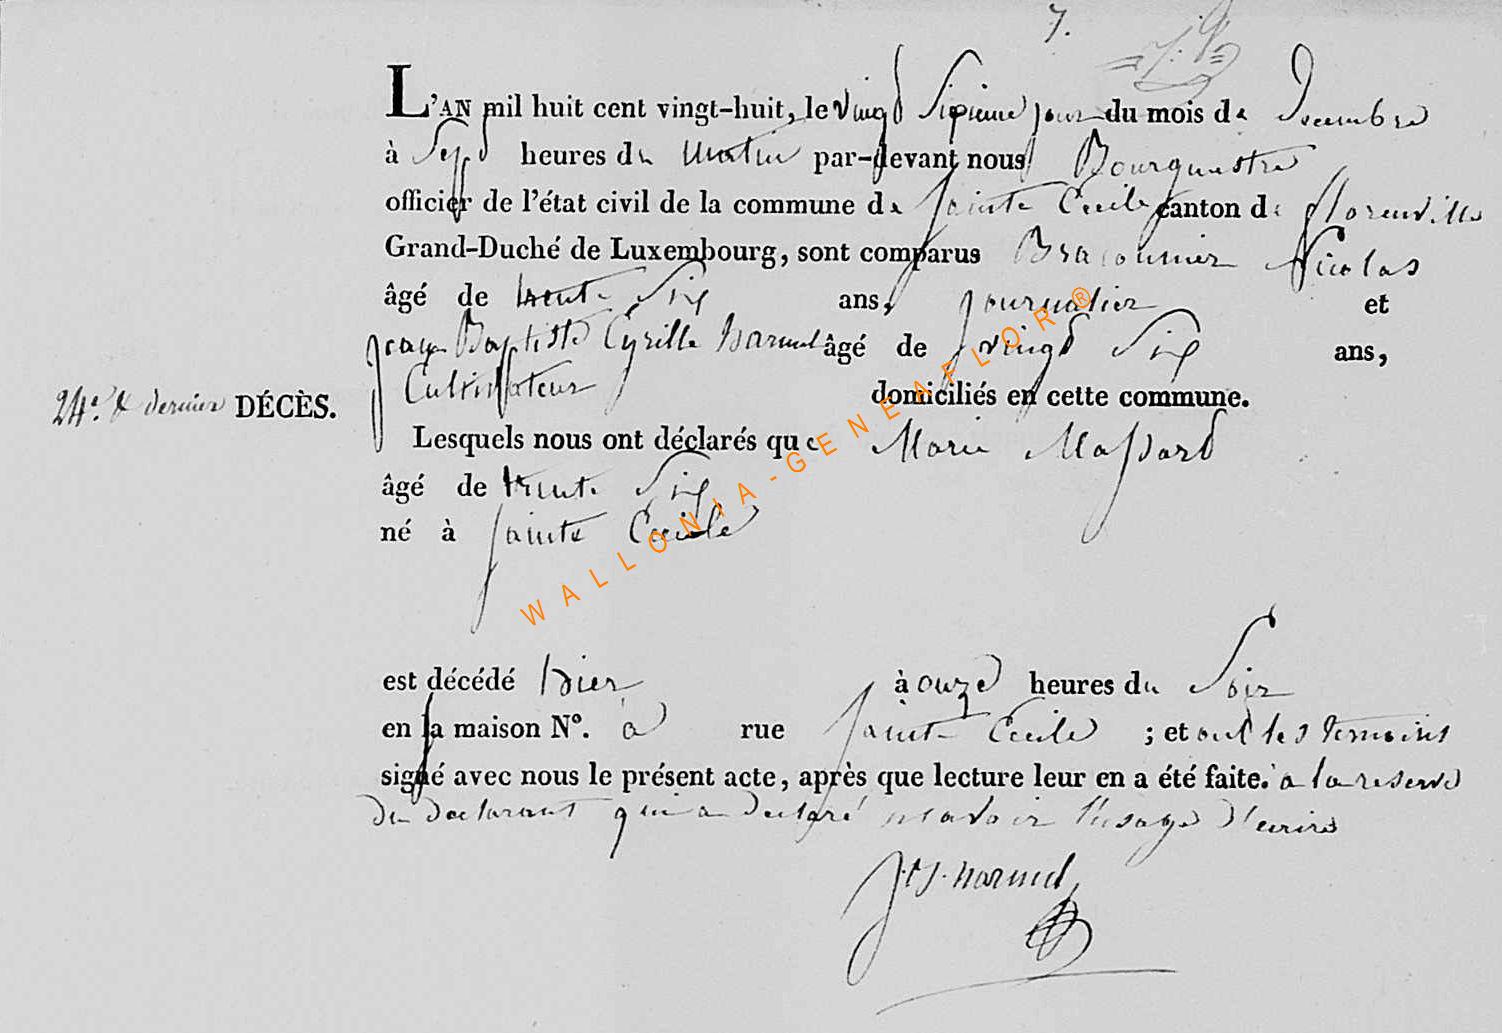 7.
L'AN mil huit cent vingt-huit, le vingt Sixieme jour du mois de Decembre
à Sept heures du Matin par-devant nous Bourguestre
officier de l'état civil de la commune de Sainte Cecile canton de florenville
Grand-Duché de Luxembourg, sont comparus Braconnier Nicolas
âgé de trente Six ans, journalier et
jean Baptiste Cyrille âgé de vingt Six ans,
Cultivateur domiciliés en cette commune.
24e. & dernier DÉCÈS.
Lesquels nous ont déclarés que Marie Massard
âgé de trente Six
né à Sainte Cecile
est décédé hier à onze heures du Soir
en sa maison No. à rue Sainte Cecile ; et ont les temoins
signé avec nous le présent acte, après que lecture leur en a été faite. a la reserve
du declarant qui a declaré n'avoir l'usage d'ecrire
WALLONIA-GENEAFLOR®